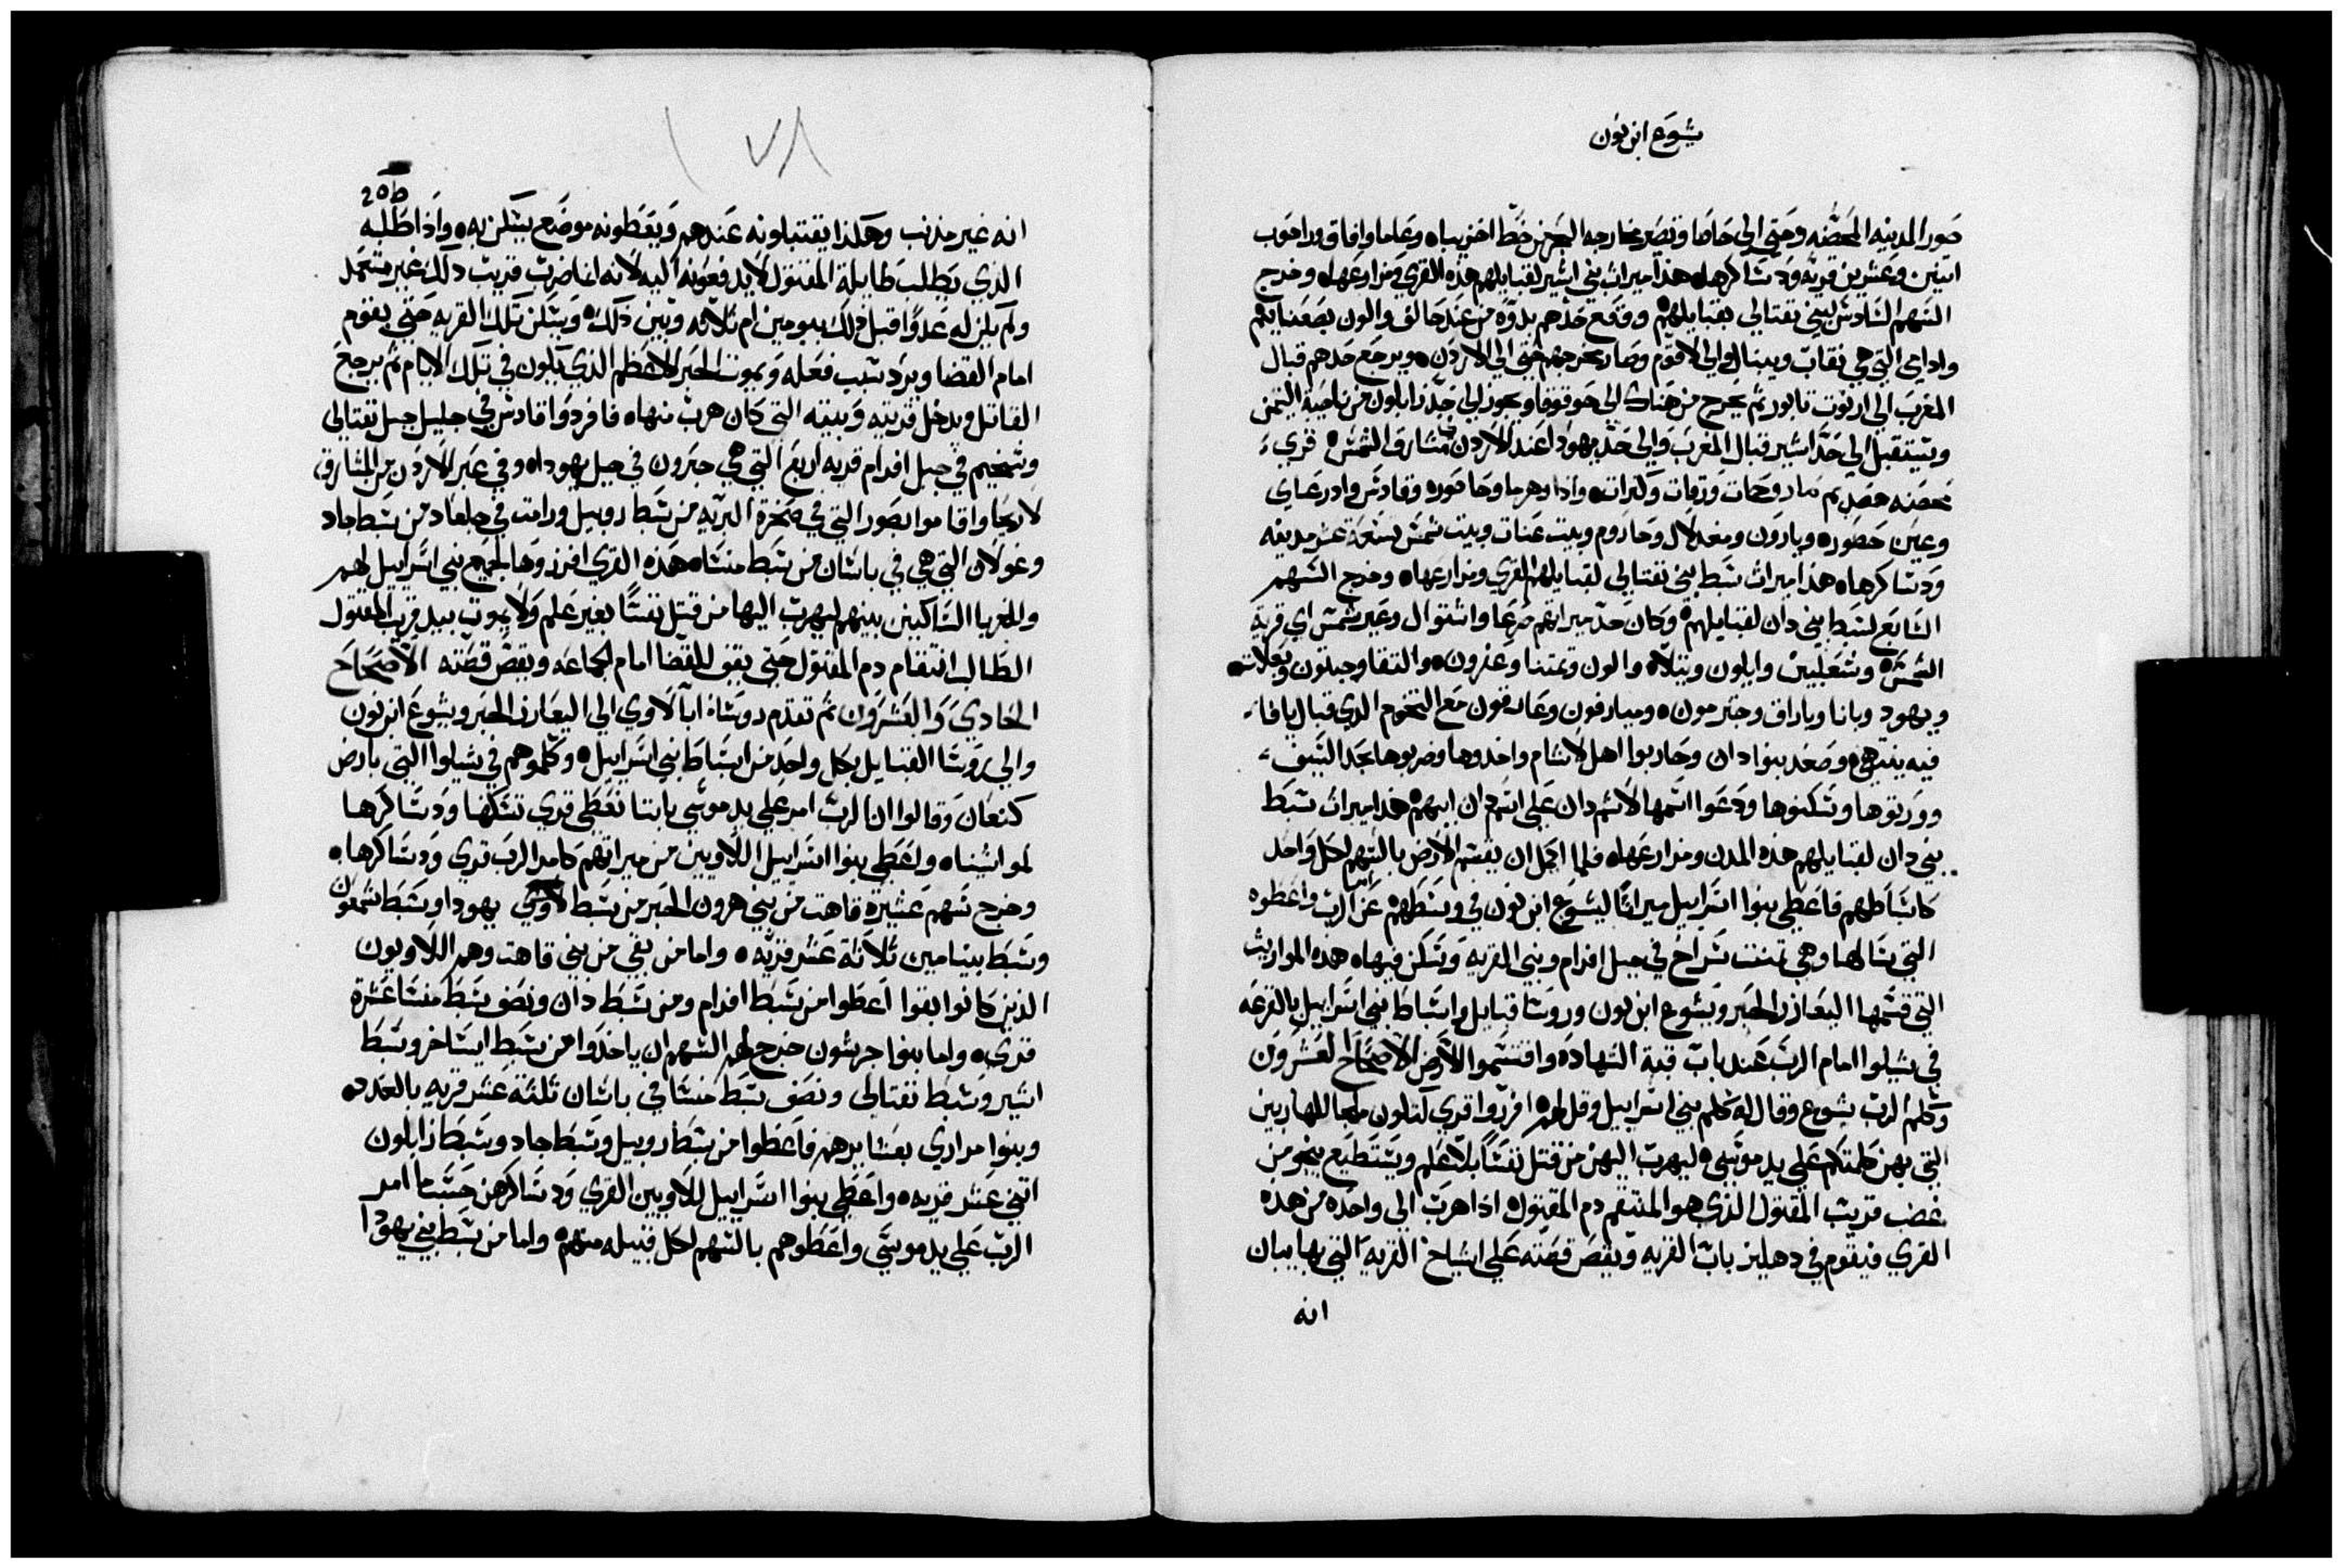 يشوع ابن نون
صور المدينه المحصنه وحتي الي حاصا وتصير مخارجه البحر من خط اخزيباه وعاما وافاق وراحوب
اتنين وعشرين قريه ودساكرهاه هذا ميراث بني اشير لقبايلهم هذه القري ومزارعهاه وخرج
السهم السادس لبني نفتالي بقبايلهم ووقع حدهم بدوه من عند حالف والون بصعنانيم
وادامي التي هي نقاب ويبنال والي لاقوم وصار مخرجهم حتي الي الاردن ويرجع حدهم قبال
المغرب الي ازنوت تابور ثم يخرج من هناك الي حوقوقا ويجوز الي حد زابلون من ناحية التيمن
ويستقبل الي حد اشير قبال المغرب والي حد يهودا عند الاردن مشارق الشمس قري
محصنه صديم صار وحمات ورقات وكنرات وادا وهرما وحاصوره وقادس وادرعاي
وعين حصوره ويارون ومغدلال وحاروم وبيت عنات وبيت شمس تسعة عشر مدينه
ودساكرهاه هذا ميراث سبط بني نفتالي لقبايلهم القري ومزارعهاه وخرج السهم
السابع لسبط بني دان لقبايلهم وكان حد ميراثهم صرعا واشتوال وعير شمس اي قرية
الشمس وشعلبين وايلون ويتلاه والون وتمنتا وعقرون والتقا وجبتون وبعلات
ويهود وبانا وباراق وجترمون وميارقون وعارقون مع التخوم الدي قبال يافا
فيه ينتهي وصعد بنوا دان وحاربوا اهل لاشام واخدوها وضربوها بحد السيف
وورتوها وسكنوها ودعوا اسمها لاشم دان علي اسم دان ابيهم هذا ميراث سبط
بني دان لقبايلهم هذه المدن ومزارعهاه فلما اكمل ان يقسم الارض بالسهم لكل واحد
كاسباطهم فاعطي بنوا اسراييل ميراثا ليشوع ابن نون في وسطهم عن امر الرب واعطوه
التي سالها وهي تمنت سراح في جبل افرام وبني القرية وسكن فيهاه هذه المواريث
التي قسمها اليعازر الحبر ويشوع ابن نون وروسا قبايل واسباط بني اسراييل بالقرعه
في شيلوا امام الرب عند باب قبة الشهاده واقتسموا الارض الاصحاح العشرون
وكلم الرب يشوع وقال له كلم بني اسراييل وقل لهم افرزوا قري لتكون ملجا للهاربين
التي بهن كلمتكم علي يد موسي ليهرب اليهن من قتل نفسا بلا علم ويستطيع ينجو من
غضب قريب المقتول الذي هو المنتقم دم المقتول اذا هرب الي واحده من هذه
القري فيقوم في دهليز باب القريه ويقص قصته علي اشياخ القرية التي بها يبان
انه
٧٨
205
انه غير مذنب وهكذا يقتبلونه عندهم ويعطونه موضع يسكن به واذا طلبه
الذي يطلب طايلة المقتول لا يدفعونه اليه لانه انما ضرب قريب ذلك غير متعمد
ولم يكن له عدوا قبل ذلك بيومين ام ثلاثه وتبين ذلك ويسكن تلك القريه حتي يقوم
امام القضا ويرد سبب فعله ويموت الحبر الاعظم الذي يكون في تلك الايام ثم يرجع
القاتل ويدخل قريته وبيته التي كان هرب منهاه فافرزوا قادس في جليل جبل نفتالي
وشخيم في جبل افرام قريه اربع التي هي حبرون في جبل يهوداه وفي عبر الاردن من المشارق
لاريحا واقاموا بصور التي في صخرة البريه من سبط روبيل ورامت في جلعاد من سبط جاد
وغولان التي هي في باشان من سبط منشاه هذه القري افرزوها لجميع بني اسراييل لهم
وللغربا الساكنين بينهم ليهرب اليها من قتل نفسا بغير علم ولا يموت بيد قريب المقتول
الطالب انتقام دم المقتول حتي يقف للقضا امام الجماعه ويقص قصته الاصحاح
الحادي والعشرون ثم تقدم روساء ابا لاوي الي اليعازر الحبر ويشوع ابن نون
والي روسا القبايل بكل واحد من اسباط بني اسراييل وكلموهم في شيلوا التي بارض
كنعان وقالوا ان الرب امر علي يد موسي باننا نعطي قري نسكنها ودساكرها
لمواشيناه واعطي بنوا اسراييل اللاويين من ميراثهم كامر الرب قري ودساكرها
وخرج سهم عشيرة قاهت من بني هرون الحبر من سبط يهودا وسبط شمعون
وسبط بينيامين ثلاثة عشر قريه واما من بقي من بني قاهت وهم اللاويون
الذين كانوا بقوا اعطوا من سبط افرام ومن سبط دان ونصف سبط منشا عشرة
قري واما بنوا جرشون خرج لهم السهم ان ياخذوا من سبط ايساخر وسبط
اشير وسبط نفتالي ونصف سبط منشا في باشان ثلثة عشر قريه بالعدد
وبنوا مراري بعشايرهم فاعطوا من سبط روبيل وسبط جاد وسبط زابلون
اتني عشر قريه واعطي بنوا اسراييل للاويين القري ودساكرهن حسبما امر
الرب علي يد موسي واعطوهم بالسهم لكل قبيله منهم واما من سبط بني يهودا